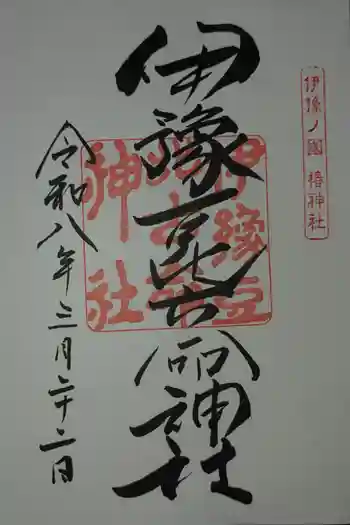 伊豫ノ國 椿神社
伊豫豆比古命神社
令和八年三月二十二日
伊豫豆
比古命
神社